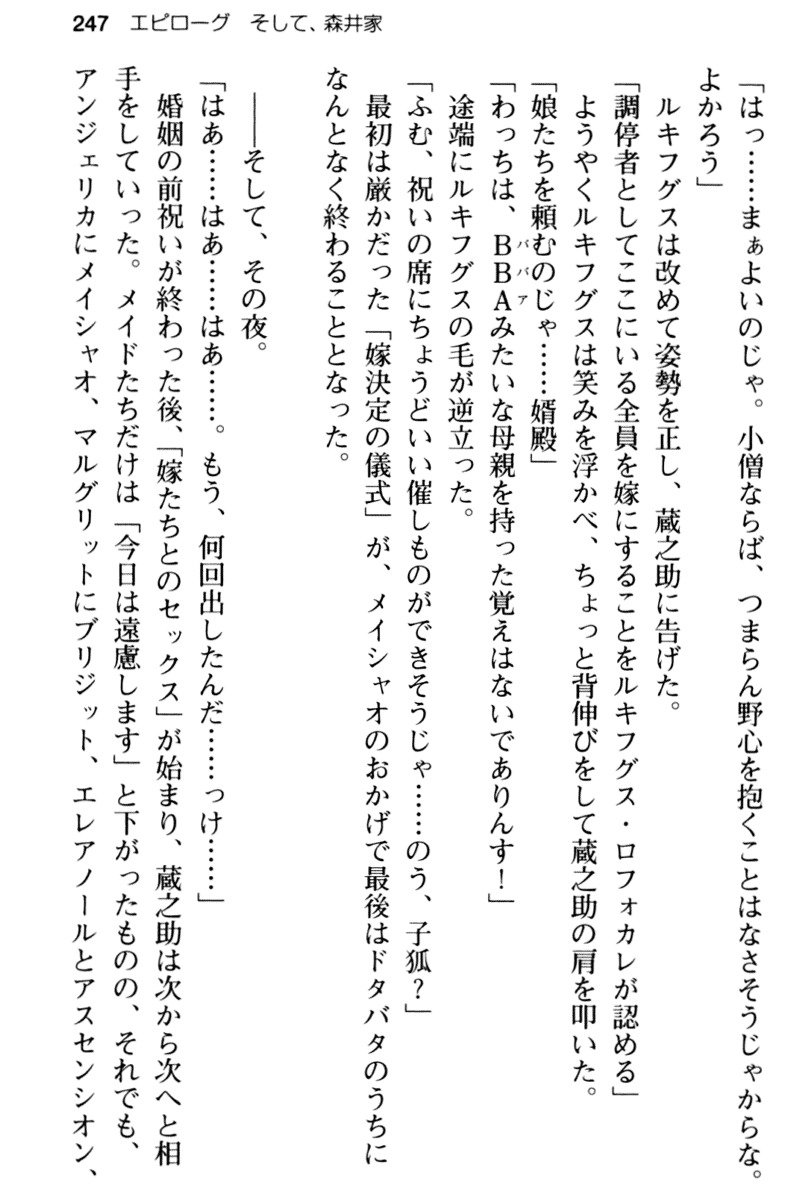 247 エピローグ そして、森井家
「はっ……まぁよいのじゃ。小僧ならば、つまらん野心を抱くことはなさそうじゃからな。
よかろう」
ルキフグスは改めて姿勢を正し、蔵之助に告げた。
「調停者としてここにいる全員を嫁にすることをルキフグス・ロフォカレが認める」
ようやくルキフグスは笑みを浮かべ、ちょっと背伸びをして蔵之助の肩を叩いた。
「娘たちを頼むのじゃ……婿殿」
「わっちは、BBAババアみたいな母親を持った覚えはないでありんす！」
途端にルキフグスの毛が逆立った。
「ふむ、祝いの席にちょうどいい催しものができそうじゃ……のう、子狐？」
最初は厳かだった「嫁決定の儀式」が、メイシャオのおかげで最後はドタバタのうちに
なんとなく終わることとなった。
――そして、その夜。
「はあ……はあ……はあ……。もう、何回出したんだ……っけ……」
婚姻の前祝いが終わった後、「嫁たちとのセックス」が始まり、蔵之助は次から次へと相
手をしていった。メイドたちだけは「今日は遠慮します」と下がったものの、それでも、
アンジェリカにメイシャオ、マルグリットにブリジット、エレアノールとアスセンシオン、